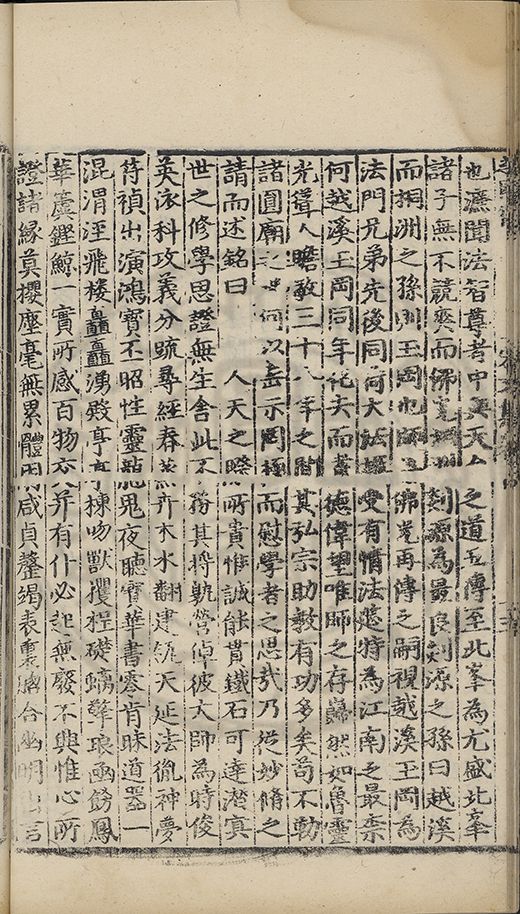 也遭聞法智尊者中興天台之道五傳至北峯為尤盛北峯
諸子無不競爽而佛光剡源為最良剡源之孫曰越溪
而桐洲之孫則玉岡也師佛光再傳之嗣視越溪玉岡為
法門兄弟先後同荷大法受有情法蔭特為江南之最柰
何越溪玉岡同年化去而耆德偉望唯師之存巋然如魯靈
光聳人瞻敬三十八年之間其弘宗助教有功多矣苟不勒
諸圓廟之何以示而慰學者之思哉乃從妙脩之
請而述銘曰 人天之際所貴惟誠能貫鐵石可達溟
世之修學思證無生舍此不務其將孰營倬彼大師為時俊
英泳科攻義分疏尋經春蕉卉木水翻建瓴天延法胤神夢
符禎出演鴻寶丕昭性靈龍鬼夜聽寶華書零肯昧道器一
混渭涇飛樓矗矗湧殿亭亭棟吻獸攫桯礎螭擎琅函飾鳳
華簴鏗鯨一實所感百物交并有什必起無廢不興惟心所
證諸緣莫攖塵毫無累體用咸貞鏧緺表裏合幽明出言